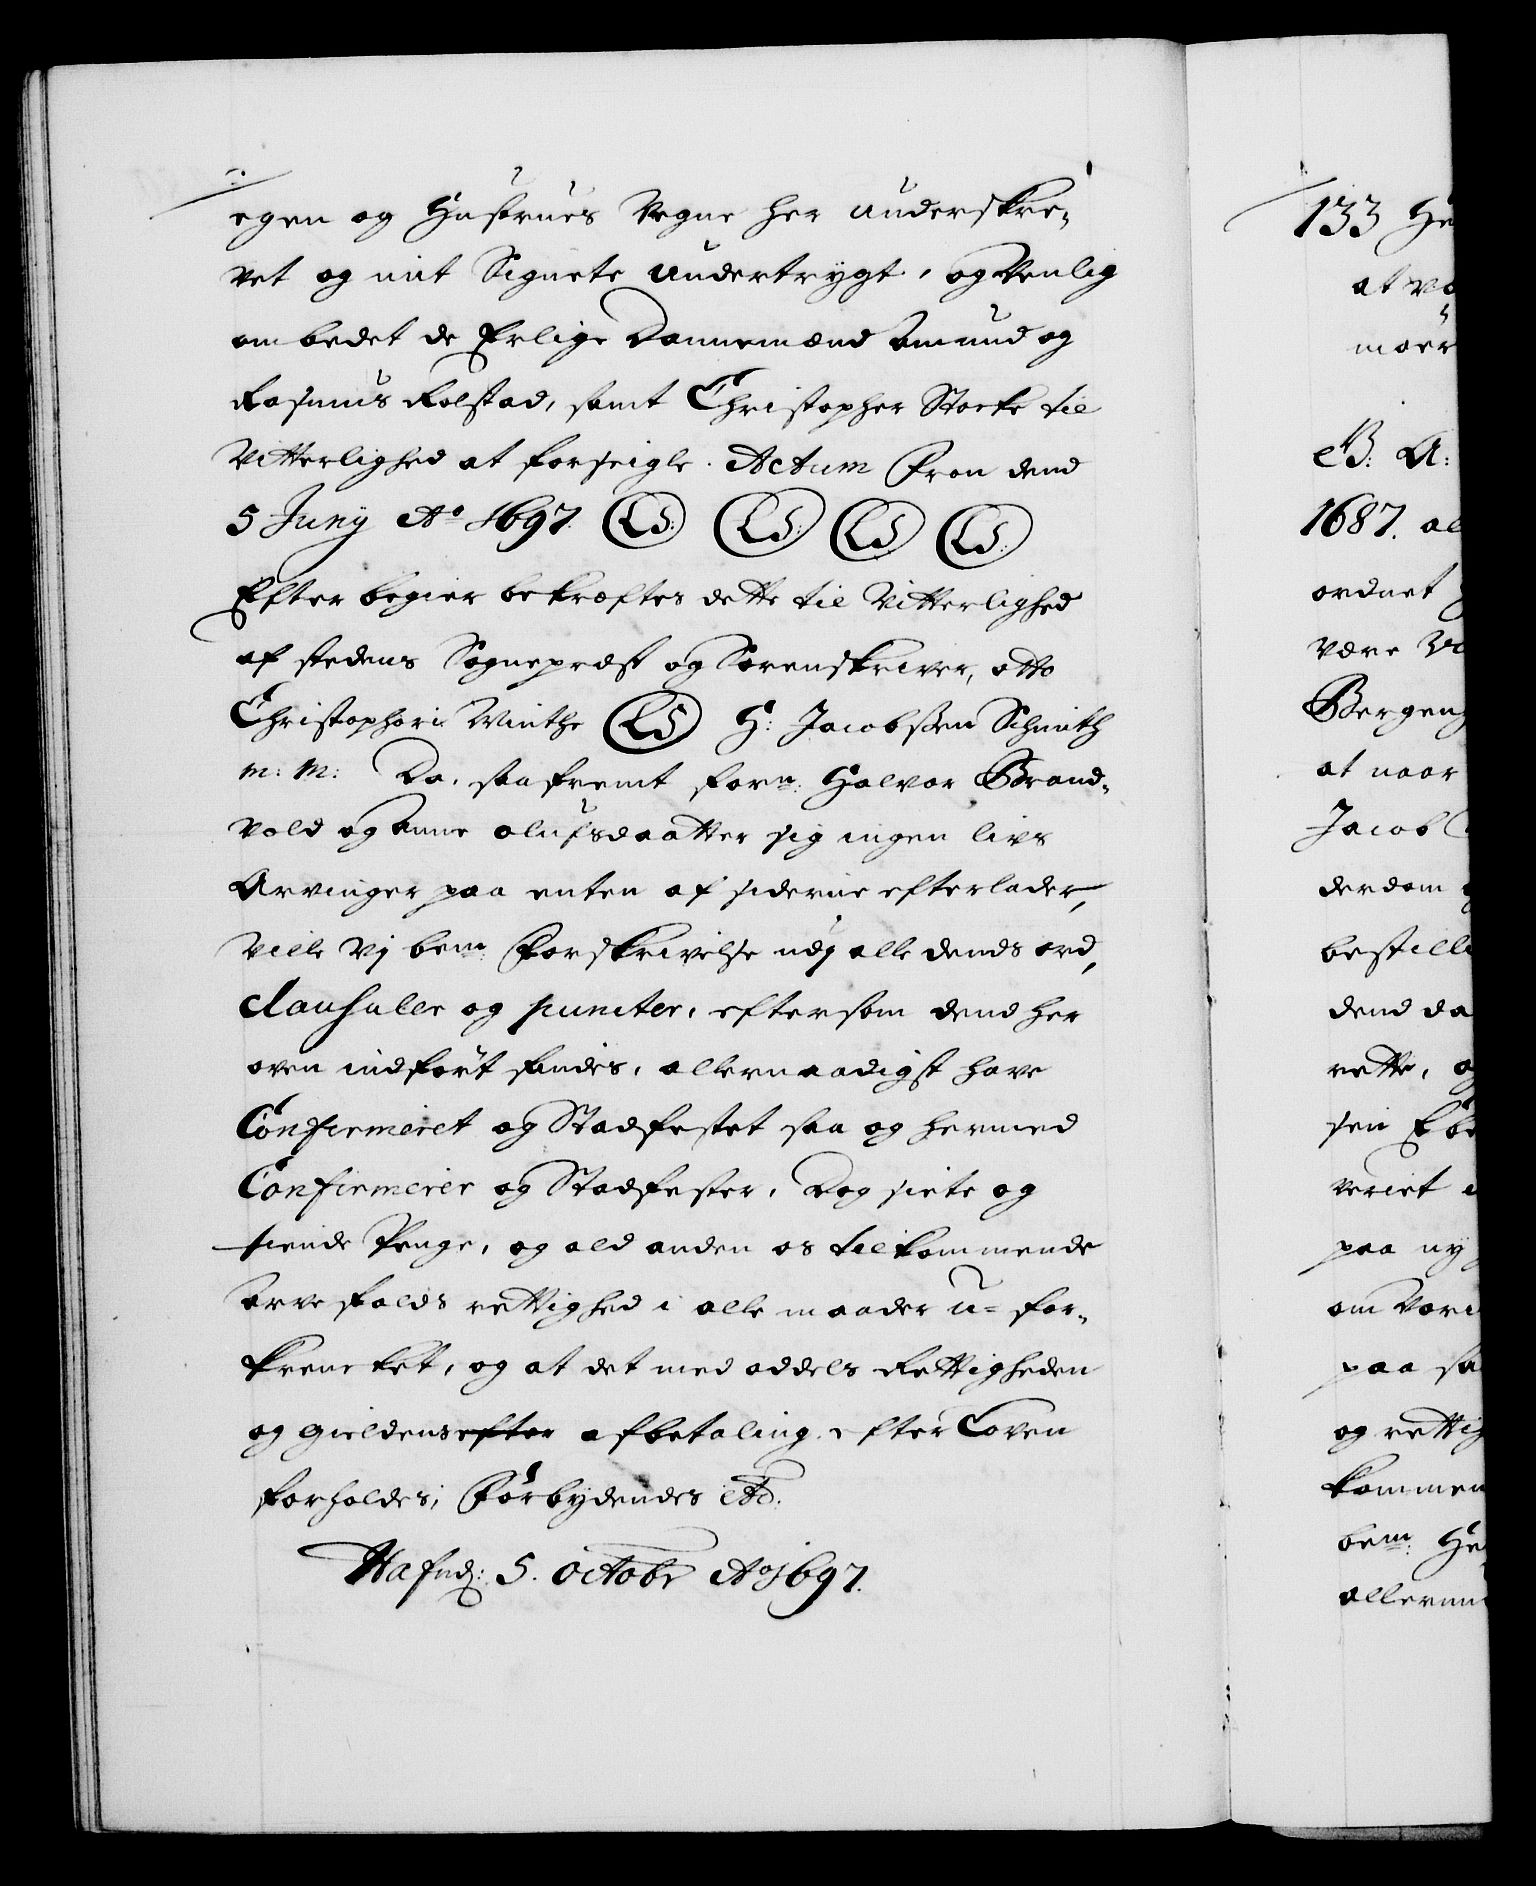 egen og Husfrues Vegne her underskre-
vet og mit Signete undertrygt, og Venlig
ombedet de Erlige Dannemænd Amund og
Rasmus Rolstad, samt Christopher Storke til
Vitterlighed at forseigle. Actum Fron dend
5 Juny Ao 1697. LS: LS: LS LS:
Efter begier bekræftes dette til Vitterlighed
af stedens Sognepræst og Sorenskriver, otto
Christophori Winthe LS H: Jacobssen Schmith
m: m: Da, saafremt forn: Halvor Brand-
vold og Anne olufsdaatter sig ingen livs
Arvinger paa enten af siderne efterlader,
Ville Vj bem: Forskrivelse udj alle dends ord,
Clausuler og puncter, eftersom dend her
oven indført findes, allernaadigst have
Confirmeret og Stadfestet saa og hermed
Confirmerer og Stadfester, Dog siete og
tiende Penge, og ald anden os tilkommende
arvefalds rettighed i alle maader u=for-
krencket, og at det med oddels Rettigheden
og gieldens efter afbetaling efter Loven
forholdes; Forbydendes etc:
Hafnæ: 5. octobr Ao 1697.
133 He
at vo
maer
B: A:
1687. al
ordnet
være
Bergen
at naar
Jacob
derdom
bestille
dend da
rette, og
sin
veriet
paa ny
om Vor
paa sa
og rettig
kommen
bem: He
allerun